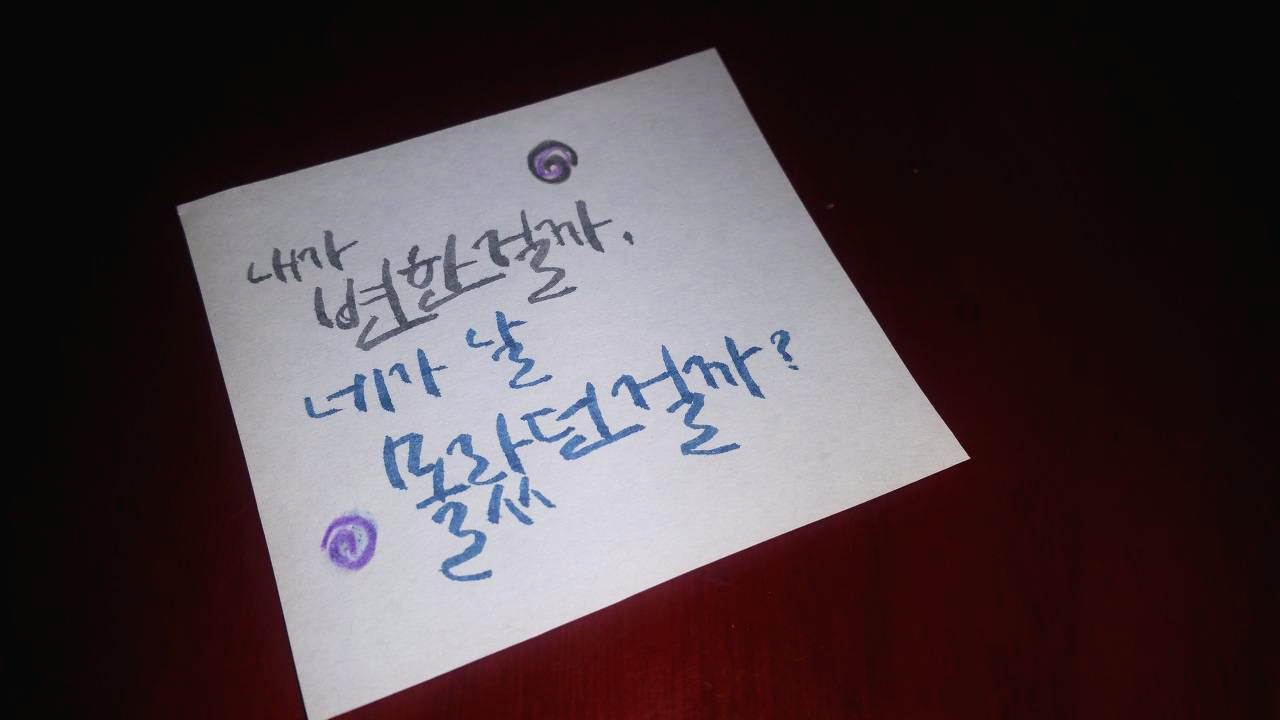 내가
변한걸까.
네가 날
몰랐던걸까?